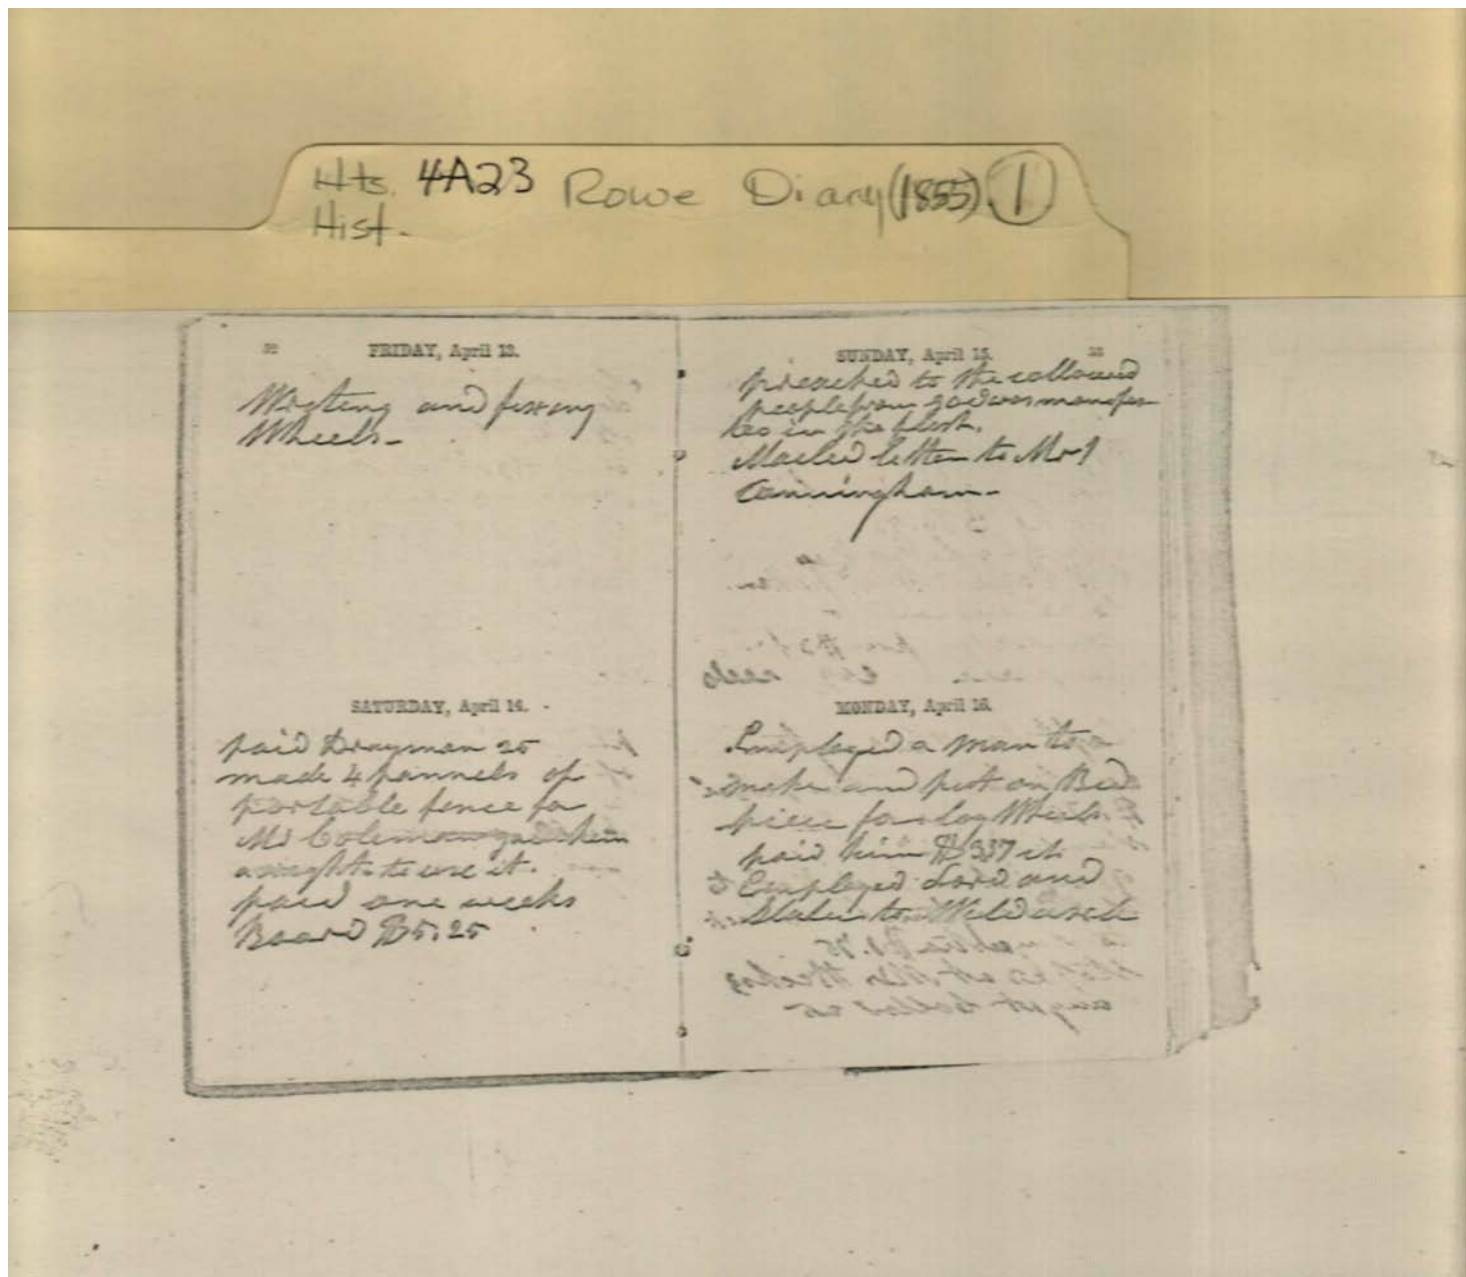 Hts. 4A23 Rowe Diary (1855) 1
Hist.
52
FRIDAY, April 13.
Writing and fixing
Wheels-
SATURDAY, April 14.
paid Drayman 25
made 4 pannels of
portable fence for
Mr Coleman gave him
a right to use it.
paid one weeks
Board $5.25
53
SUNDAY, April 15.
preached to the collored
people from God was manifes
ted in the flesh.
Mailed letter to Mr J
Cunningham-
MONDAY, April 16.
Employed a man to
make and put on Bed
piece for log Wheels
paid him $3.37 ct
Employed Lord and
to Weld